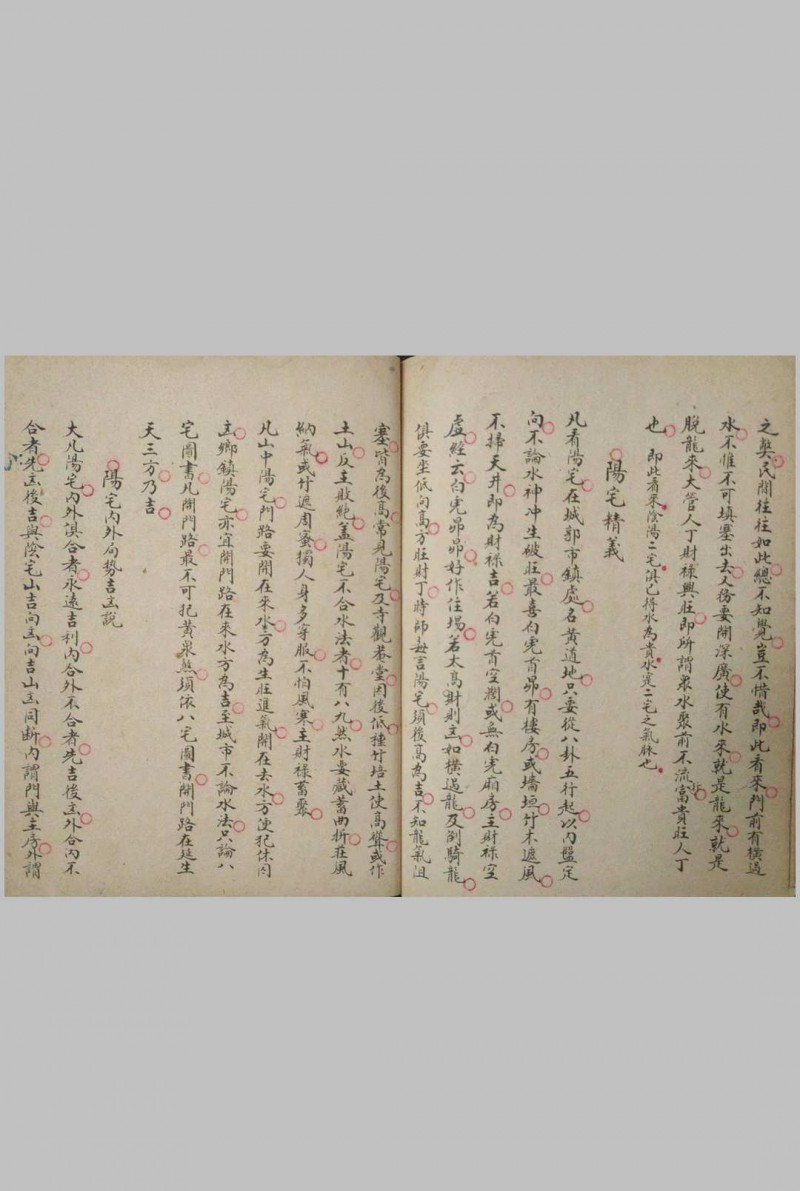 之獘民間往往如此總不知覺豈不惜哉即此看來門前有橫過
水不惟不可填塞出去又務要開深廣使有水來就是龍來就是
脫龍來大管人丁財祿興旺即所謂衆水聚前不流富貴旺人丁
也即此看來陰陽二宅俱已得水為貴水寔二宅之氣脉也
陽宅精義
凡看陽宅在城郭市鎮處名黃道地只要從八卦五行起以內盤定
向不論水神冲生破旺最喜白虎首昂有樓房或墻垣竹木遮風
不掃天井即為財祿吉若白虎首空濶或無白虎廂房主財祿空
虛經云白虎昂昂好作住塲若太高財則主如橫過龍及倒騎龍
俱要坐低向高方旺財丁時師每言陽宅湏後高為吉不知龍氣沮
塞皆為後高常見陽宅及寺觀菴堂因後低種竹培土使高聳或作
土山反主敗絶蓋陽宅不合水法者十有八九然水要藏蓄曲折在風
納氣或竹遮周蜜獨人身多穿服不怕風寒主財祿蓄聚
凡山中陽宅門路要開在來水方為生旺進氣開在去水方便犯休囚
玄鄉鎮陽宅亦宜開門路在來水方為吉至城市不論水法只論八
宅圖書凡開門路最不可犯黃泉煞湏依八宅圖書開門路在延生
天三方乃吉
陽宅內外局勢吉玄說
大凡陽宅內外俱合者永遠吉利內合外不合者先吉後玄外合內不
合者先玄後吉與陰宅山吉向玄向吉山玄同斷內謂門與主房外謂